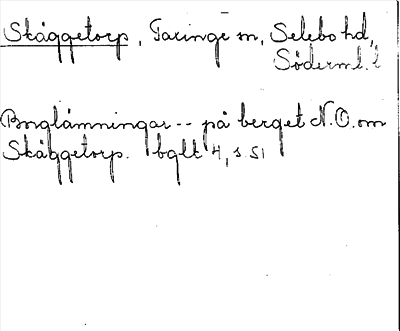 Skäggetorp, Taringe sn, Selebo hd,
Söderml. l
Borglämningar -- på berget N.O. om
Skäggetorp. bglt 4, s. 51